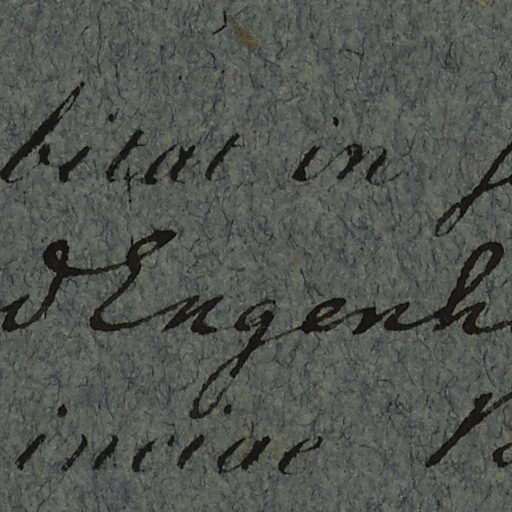 bitat in
d Engenh
inciae